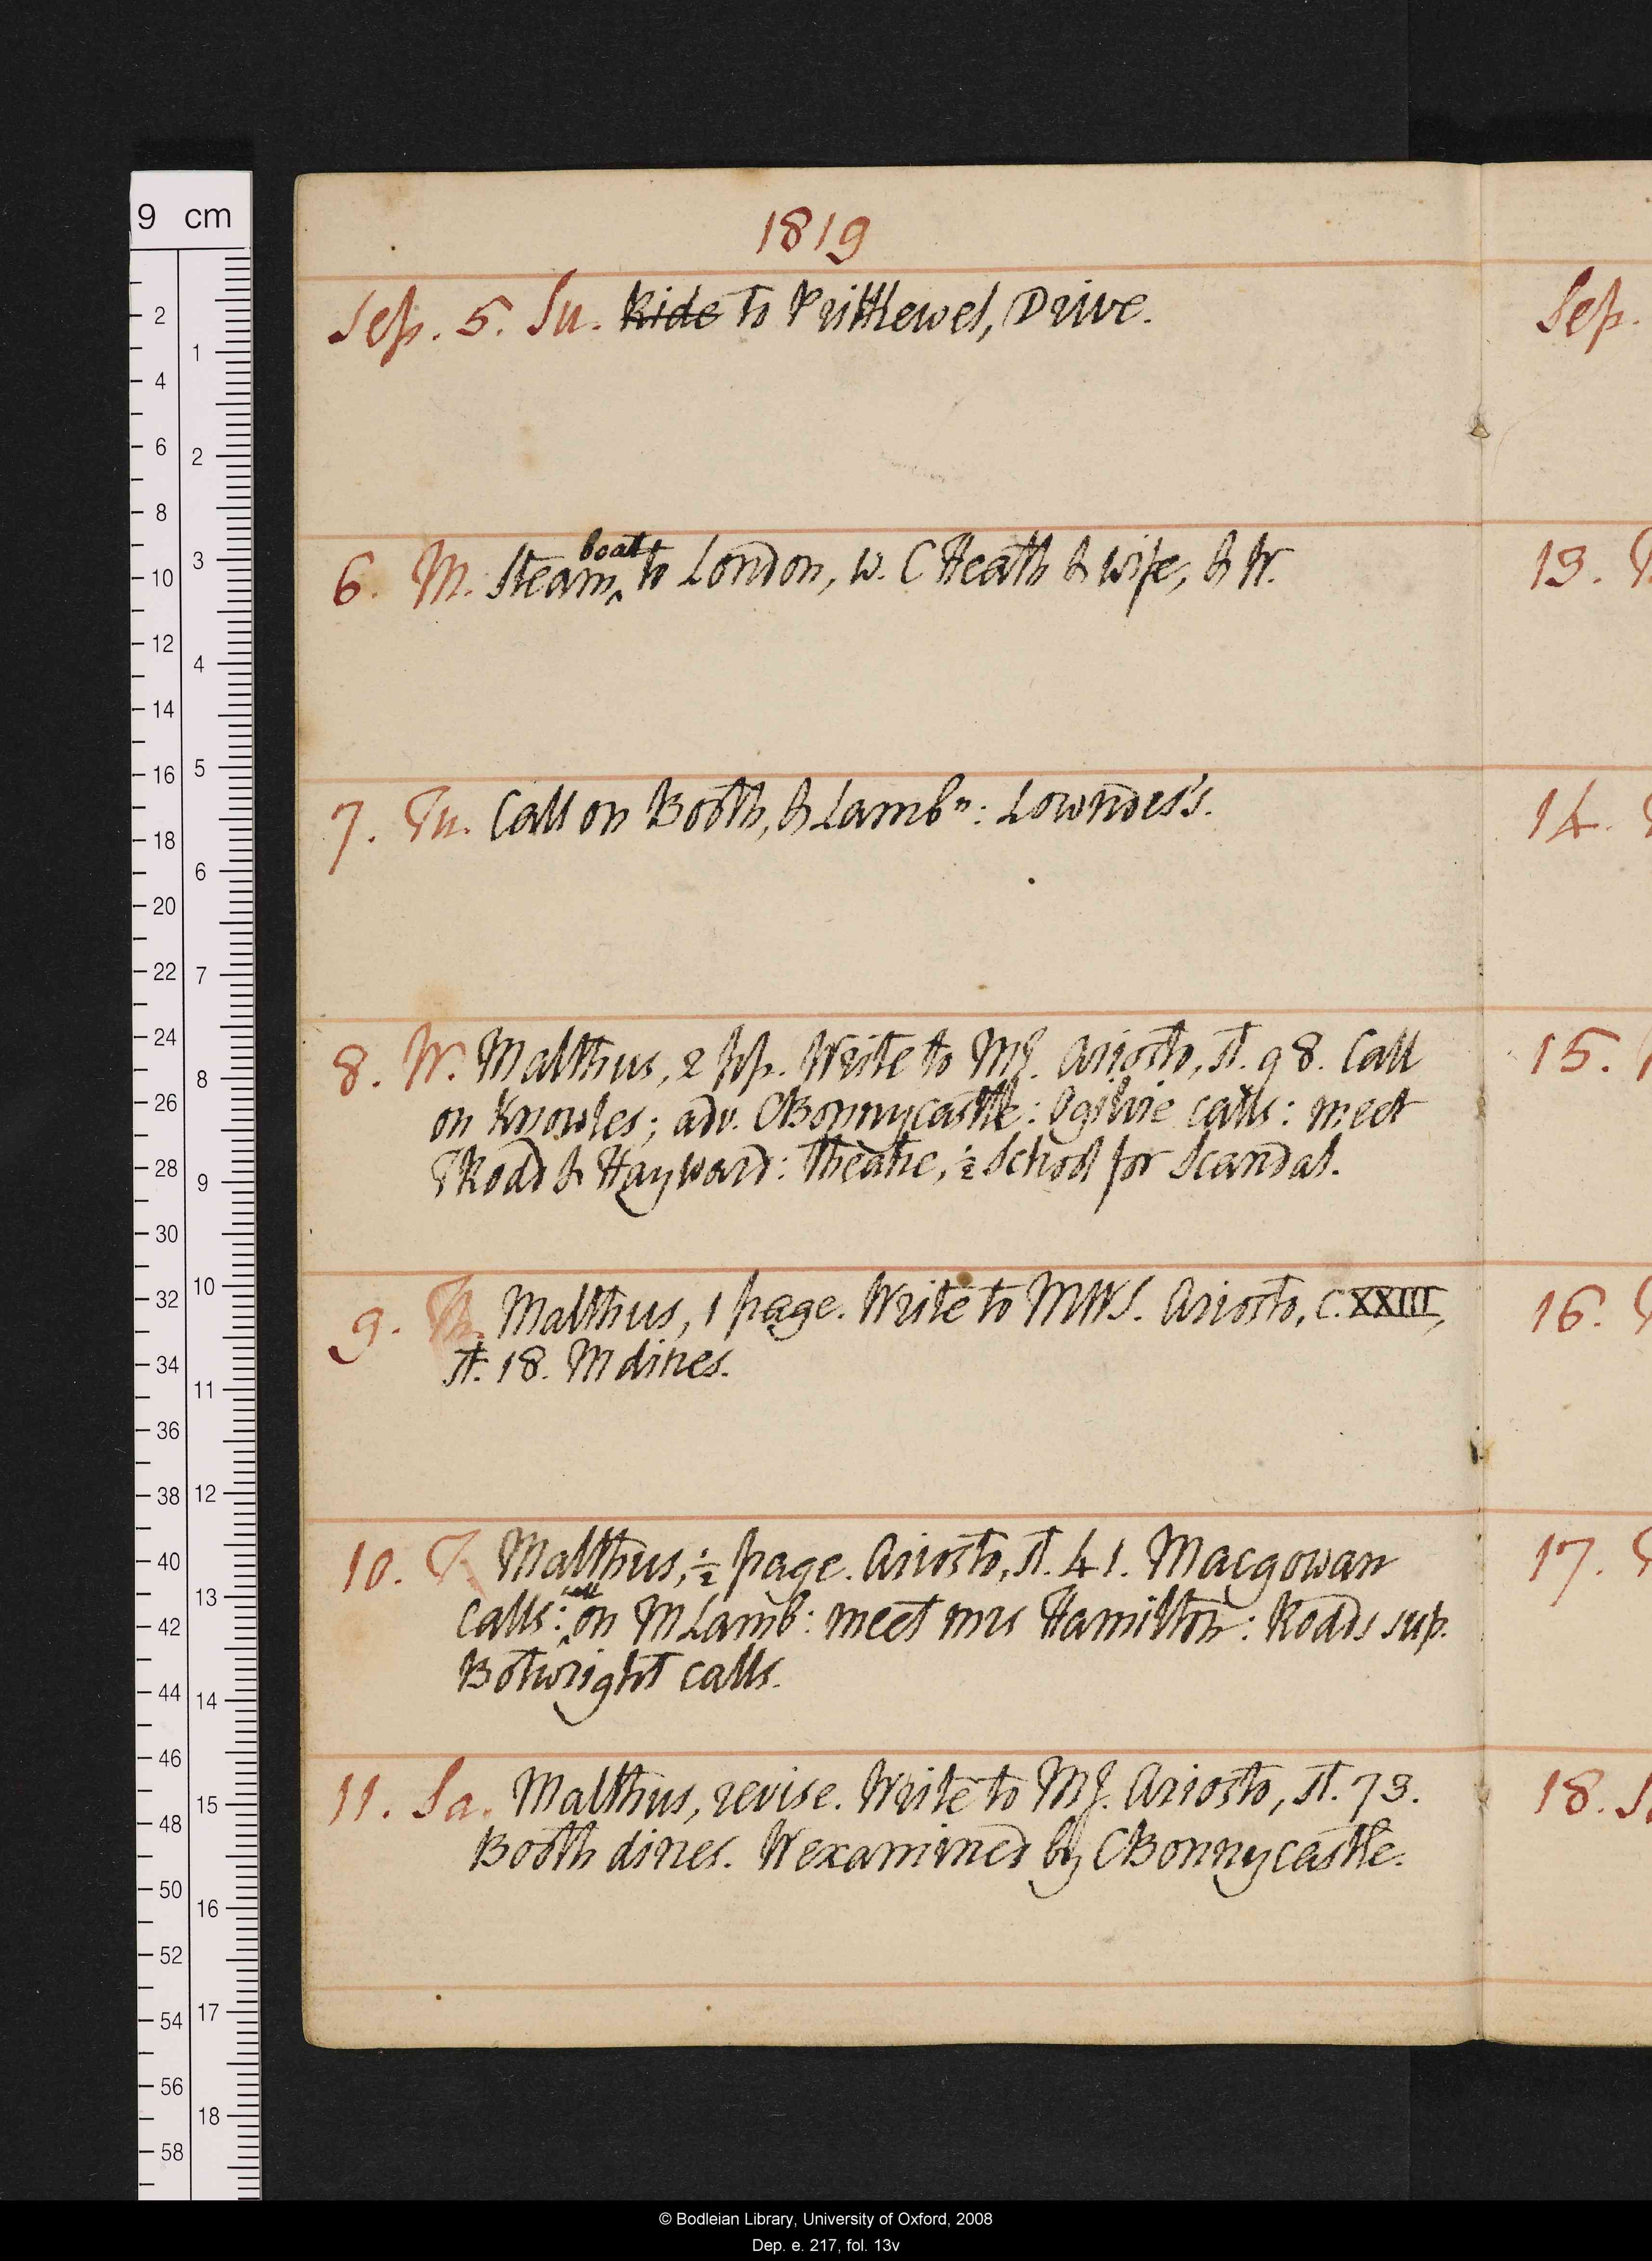 1819
Sep. 5. Su. Ride to Prittlewel, Drive.
Sep.
boat
6. M. Steam‸ to London, w. C Heath & wife, & W.
13.
7. Tu. Call on Booth, & Lambⁿ: Lowndes's.
14.
8. W. Malthus, 2 pp. Write to MJ. Ariosto, st. 98. Call
on Knowles; adv. CBonnycastle: Ogilvie calls: meet
TRodd & Hayward: theatre, ½ School for Scandal.
15.
9. Th. Malthus, 1 page. Write to MWS. Ariosto, C. XXIII,
st. 18. M dines.
16.
10. F. Malthus, ½ page. Ariosto, st. 41. Macgowan
call
calls:‸ on MLamb: meet mrs Hamilton: Rodds sup.
Botwright calls.
17.
11. Sa. Malthus, revise. Write to MJ. Ariosto, st. 73.
Booth dines. W examined by CBonnycastle.
18. S
9 cm
2
4
6
8
10
12
14
16
18
20
22
24
26
28
30
32
34
36
38
40
42
44
46
48
50
52
54
56
58
1
2
3
4
5
6
7
8
9
10
11
12
13
14
15
16
17
18
© Bodleian Library, University of Oxford, 2008
Dep. e. 217, fol. 13v